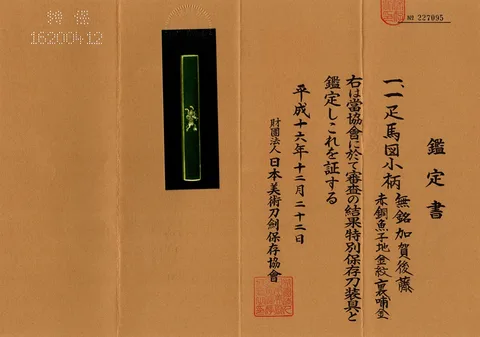 鑑定書
一、一疋馬図小柄 無銘加賀後藤
赤銅魚子地金紋裏哺金
右は當協會に於て審査の結果特別保存刀装具と
鑑定しこれを証する
平成十六年十二月二十二日
財團法人日本美術刀剣保存協會
№ 227095
16200412